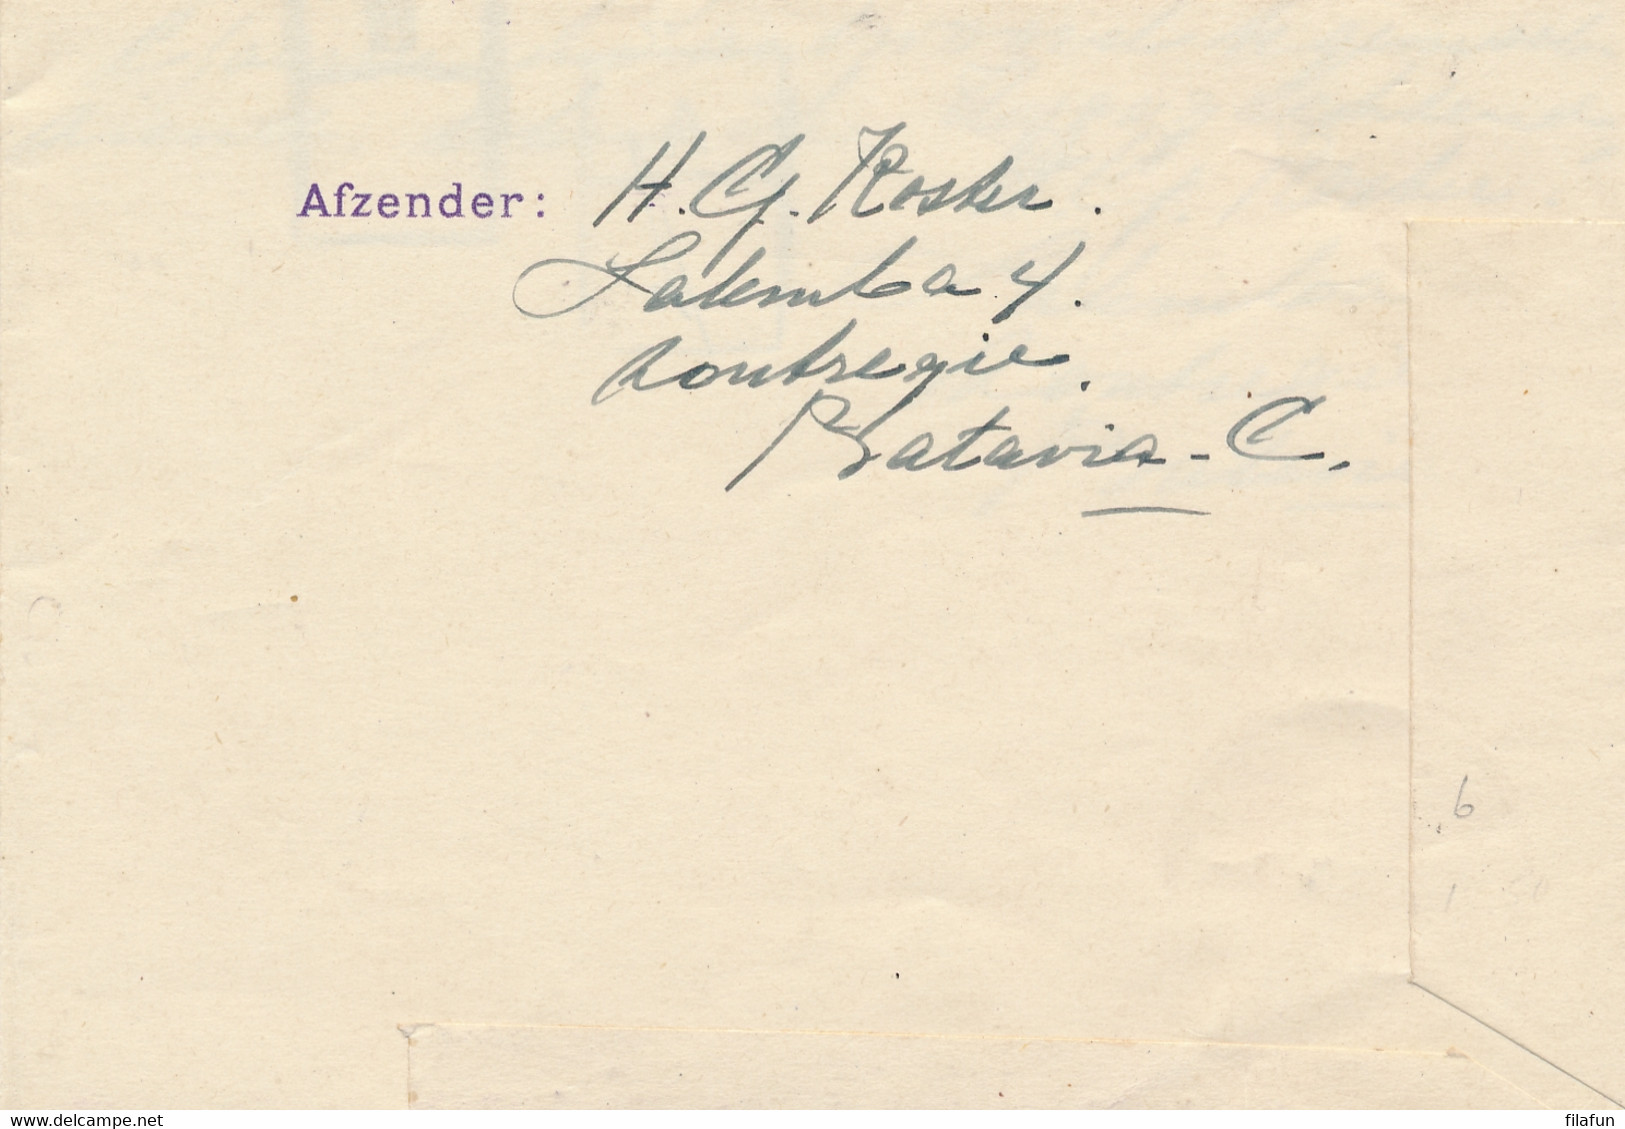 Afzender: H. G. Koster.
Salemba 4.
Zoutregie.
Batavia-C.
6
1
delcampe.net
filafun